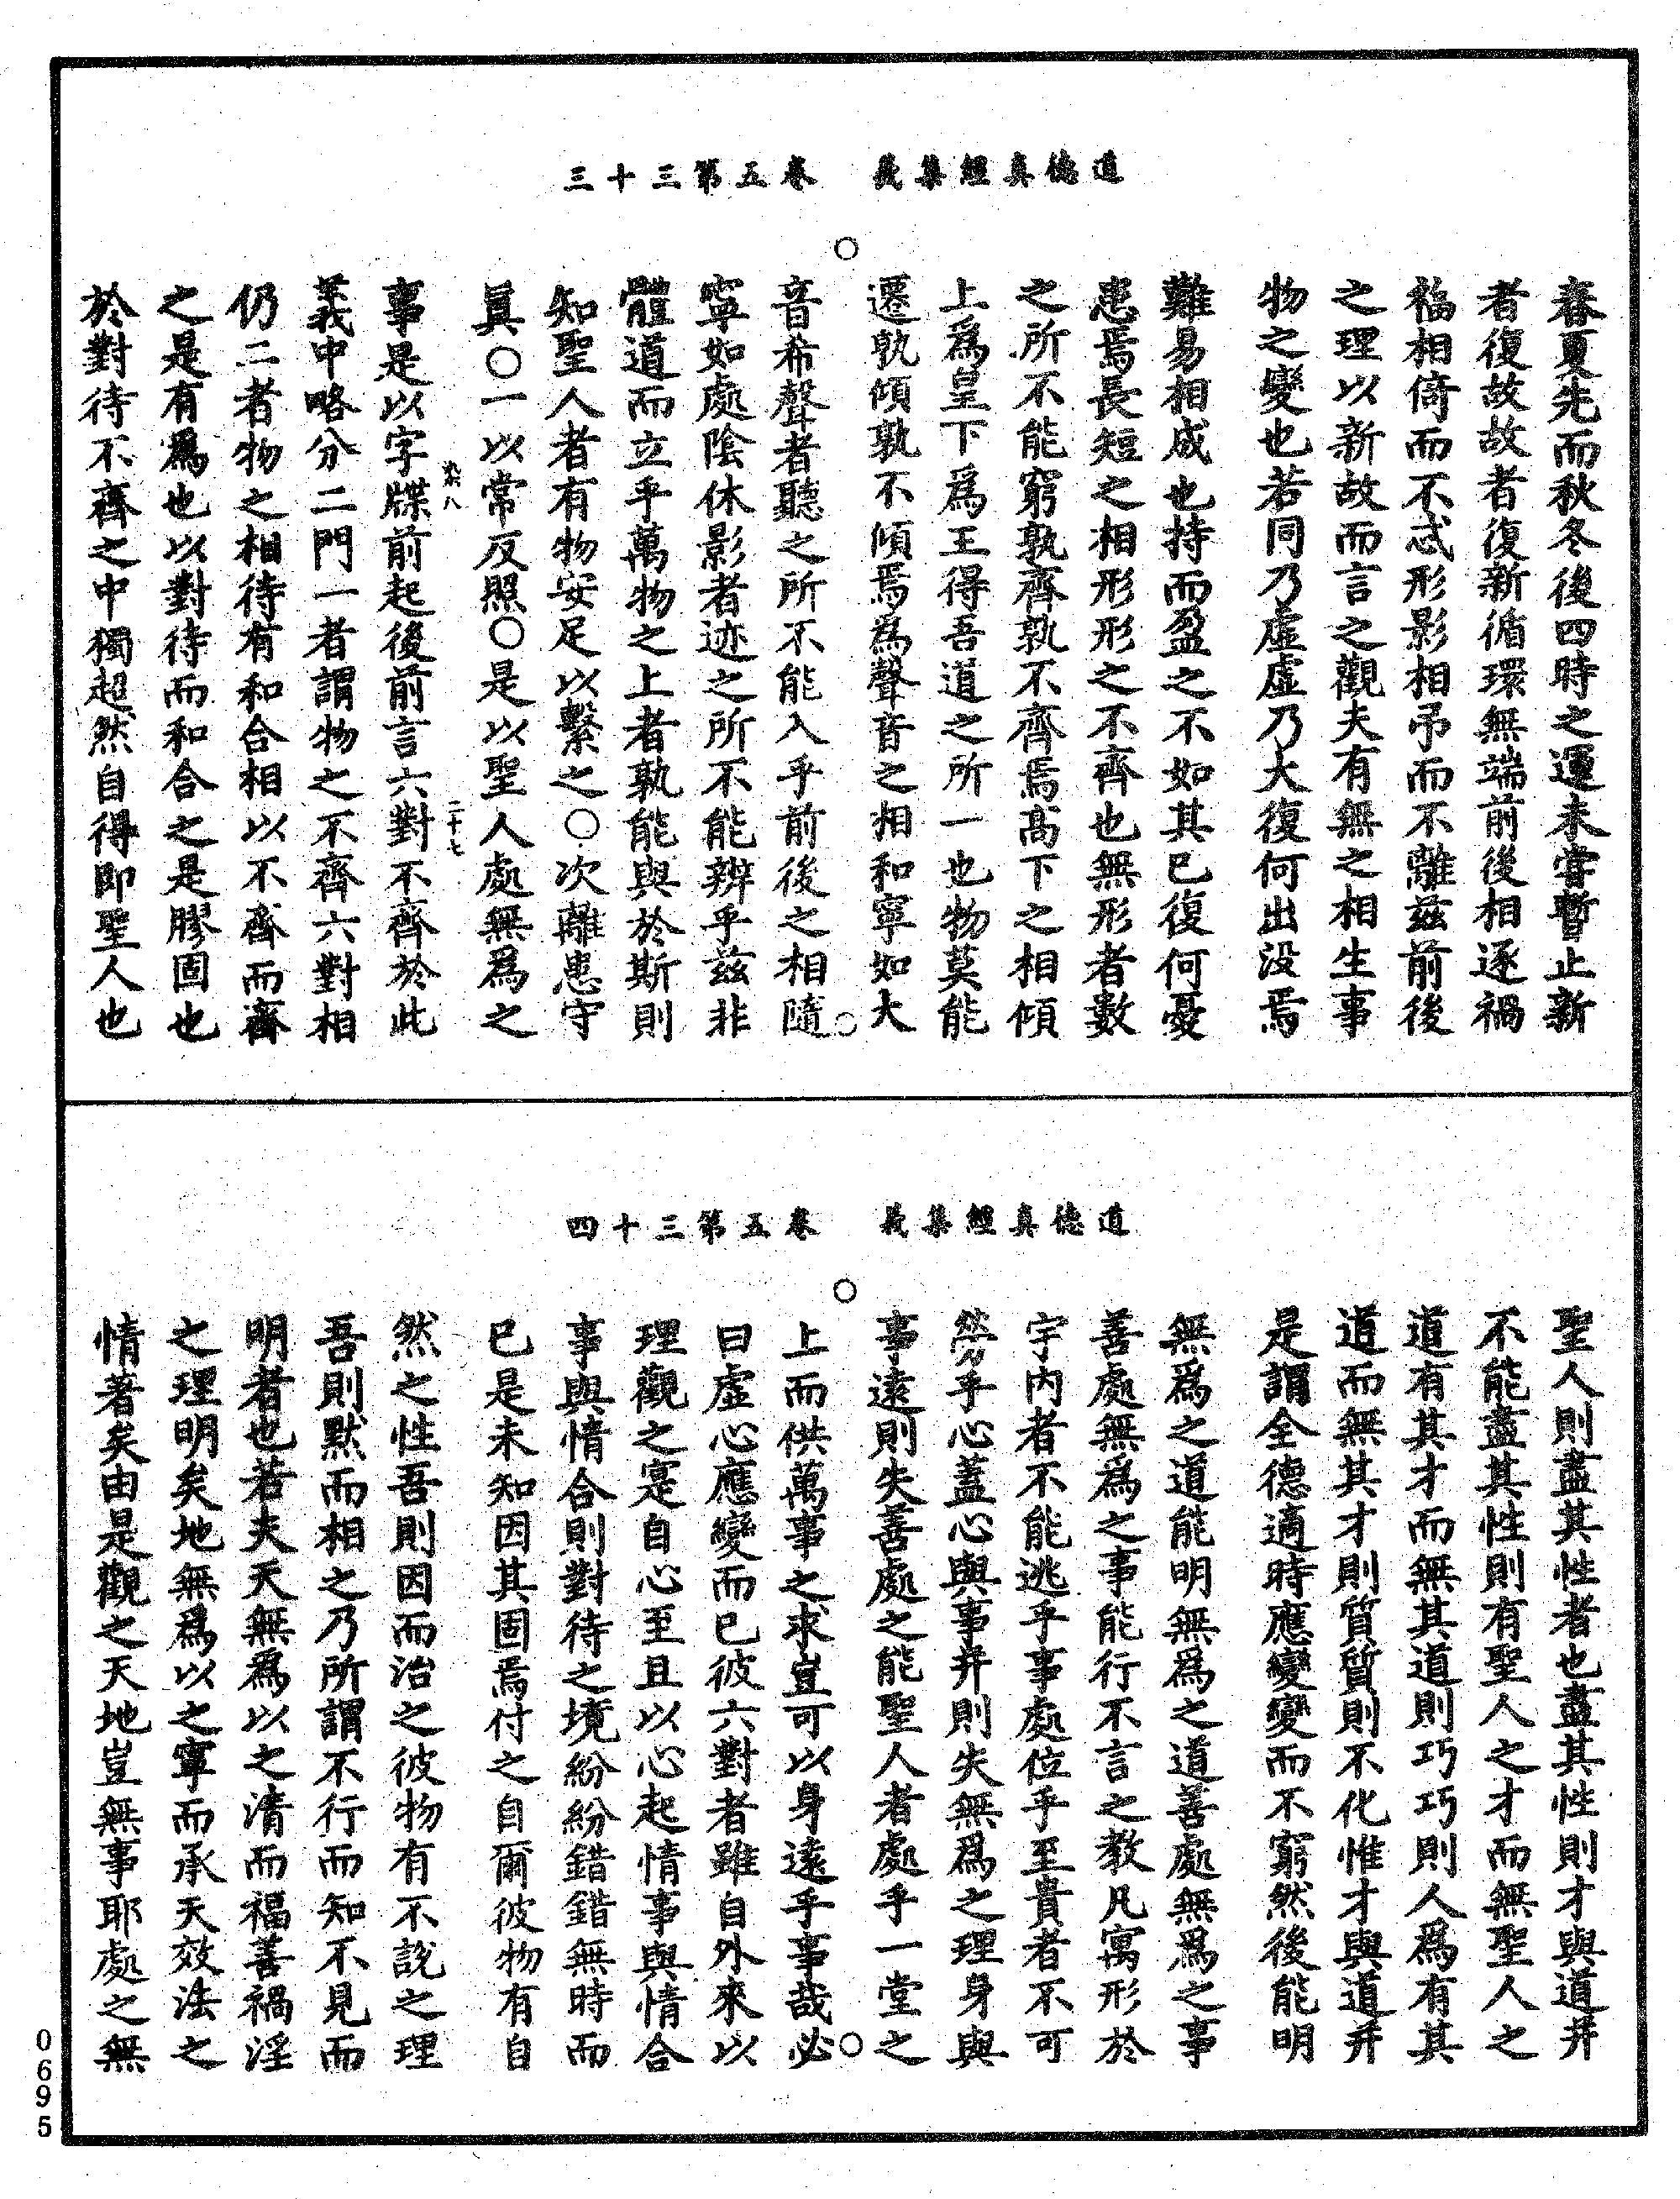 道德真經集義　卷五第三十三
春夏先而秋冬後四時之運未嘗暫止新
者復故故者復新循環無端前後相逐禍
福相倚而不忒形影相吊而不離兹前後
之理以新故而言之觀夫有無之相生事
物之變也若同乃虛虛乃大復何出没焉
難易相成也持而盈之不如其已復何憂
患焉長短之相形形之不齊也無形者數
之所不能窮孰齊孰不齊焉高下之相傾
上爲皇下爲王得吾道之所一也物莫能
遷孰傾孰不傾焉爲聲音之相和寧如大
音希聲者聽之所不能入乎前後之相隨
寧如處陰休影者迹之所不能辨乎兹非
體道而立乎萬物之上者孰能與於斯則
知聖人者有物安足以繫之○次離患守
真○一以常反照○是以聖人處無爲之
二十七
事是以字牒前起後前言六對不齊於此
義中略分二門一者謂物之不齊六對相
仍二者物之相待有和合相以不齊而齊
之是有爲也以對待而和合之是膠固也
於對待不齊之中獨超然自得即聖人也
道德真經集義　卷五第三十四
聖人則盡其性者也盡其性則才與道并
不能盡其性則有聖人之才而無聖人之
道有其才而無其道則巧巧則人爲有其
道而無其才則質質則不化惟才與道并
是謂全德適時應變變而不窮然後能明
無爲之道能明無爲之道善處無爲之事
善處無爲之事能行不言之教凡寓形於
宇内者不能逃乎事處位乎至貴者不可
勞乎心蓋心與事并則失無爲之理身與
事遠則失善處之能聖人者處乎一堂之
上而供萬事之求豈可以身遠乎事哉必
曰虛心應變而已彼六對者雖自外來以
理觀之寔自心至且以心起情事與情合
事與情合則對待之境紛紛錯錯無時而
已是未知因其固焉付之自爾彼物有自
然之性吾則因而治之彼物有不說之理
吾則默而相之乃所謂不行而知不見而
明者也若夫天無爲以之清而福善禍淫
之理明矣地無爲以之寧而承天效法之
情著矣由是觀之天地豈無事耶處之無
0695